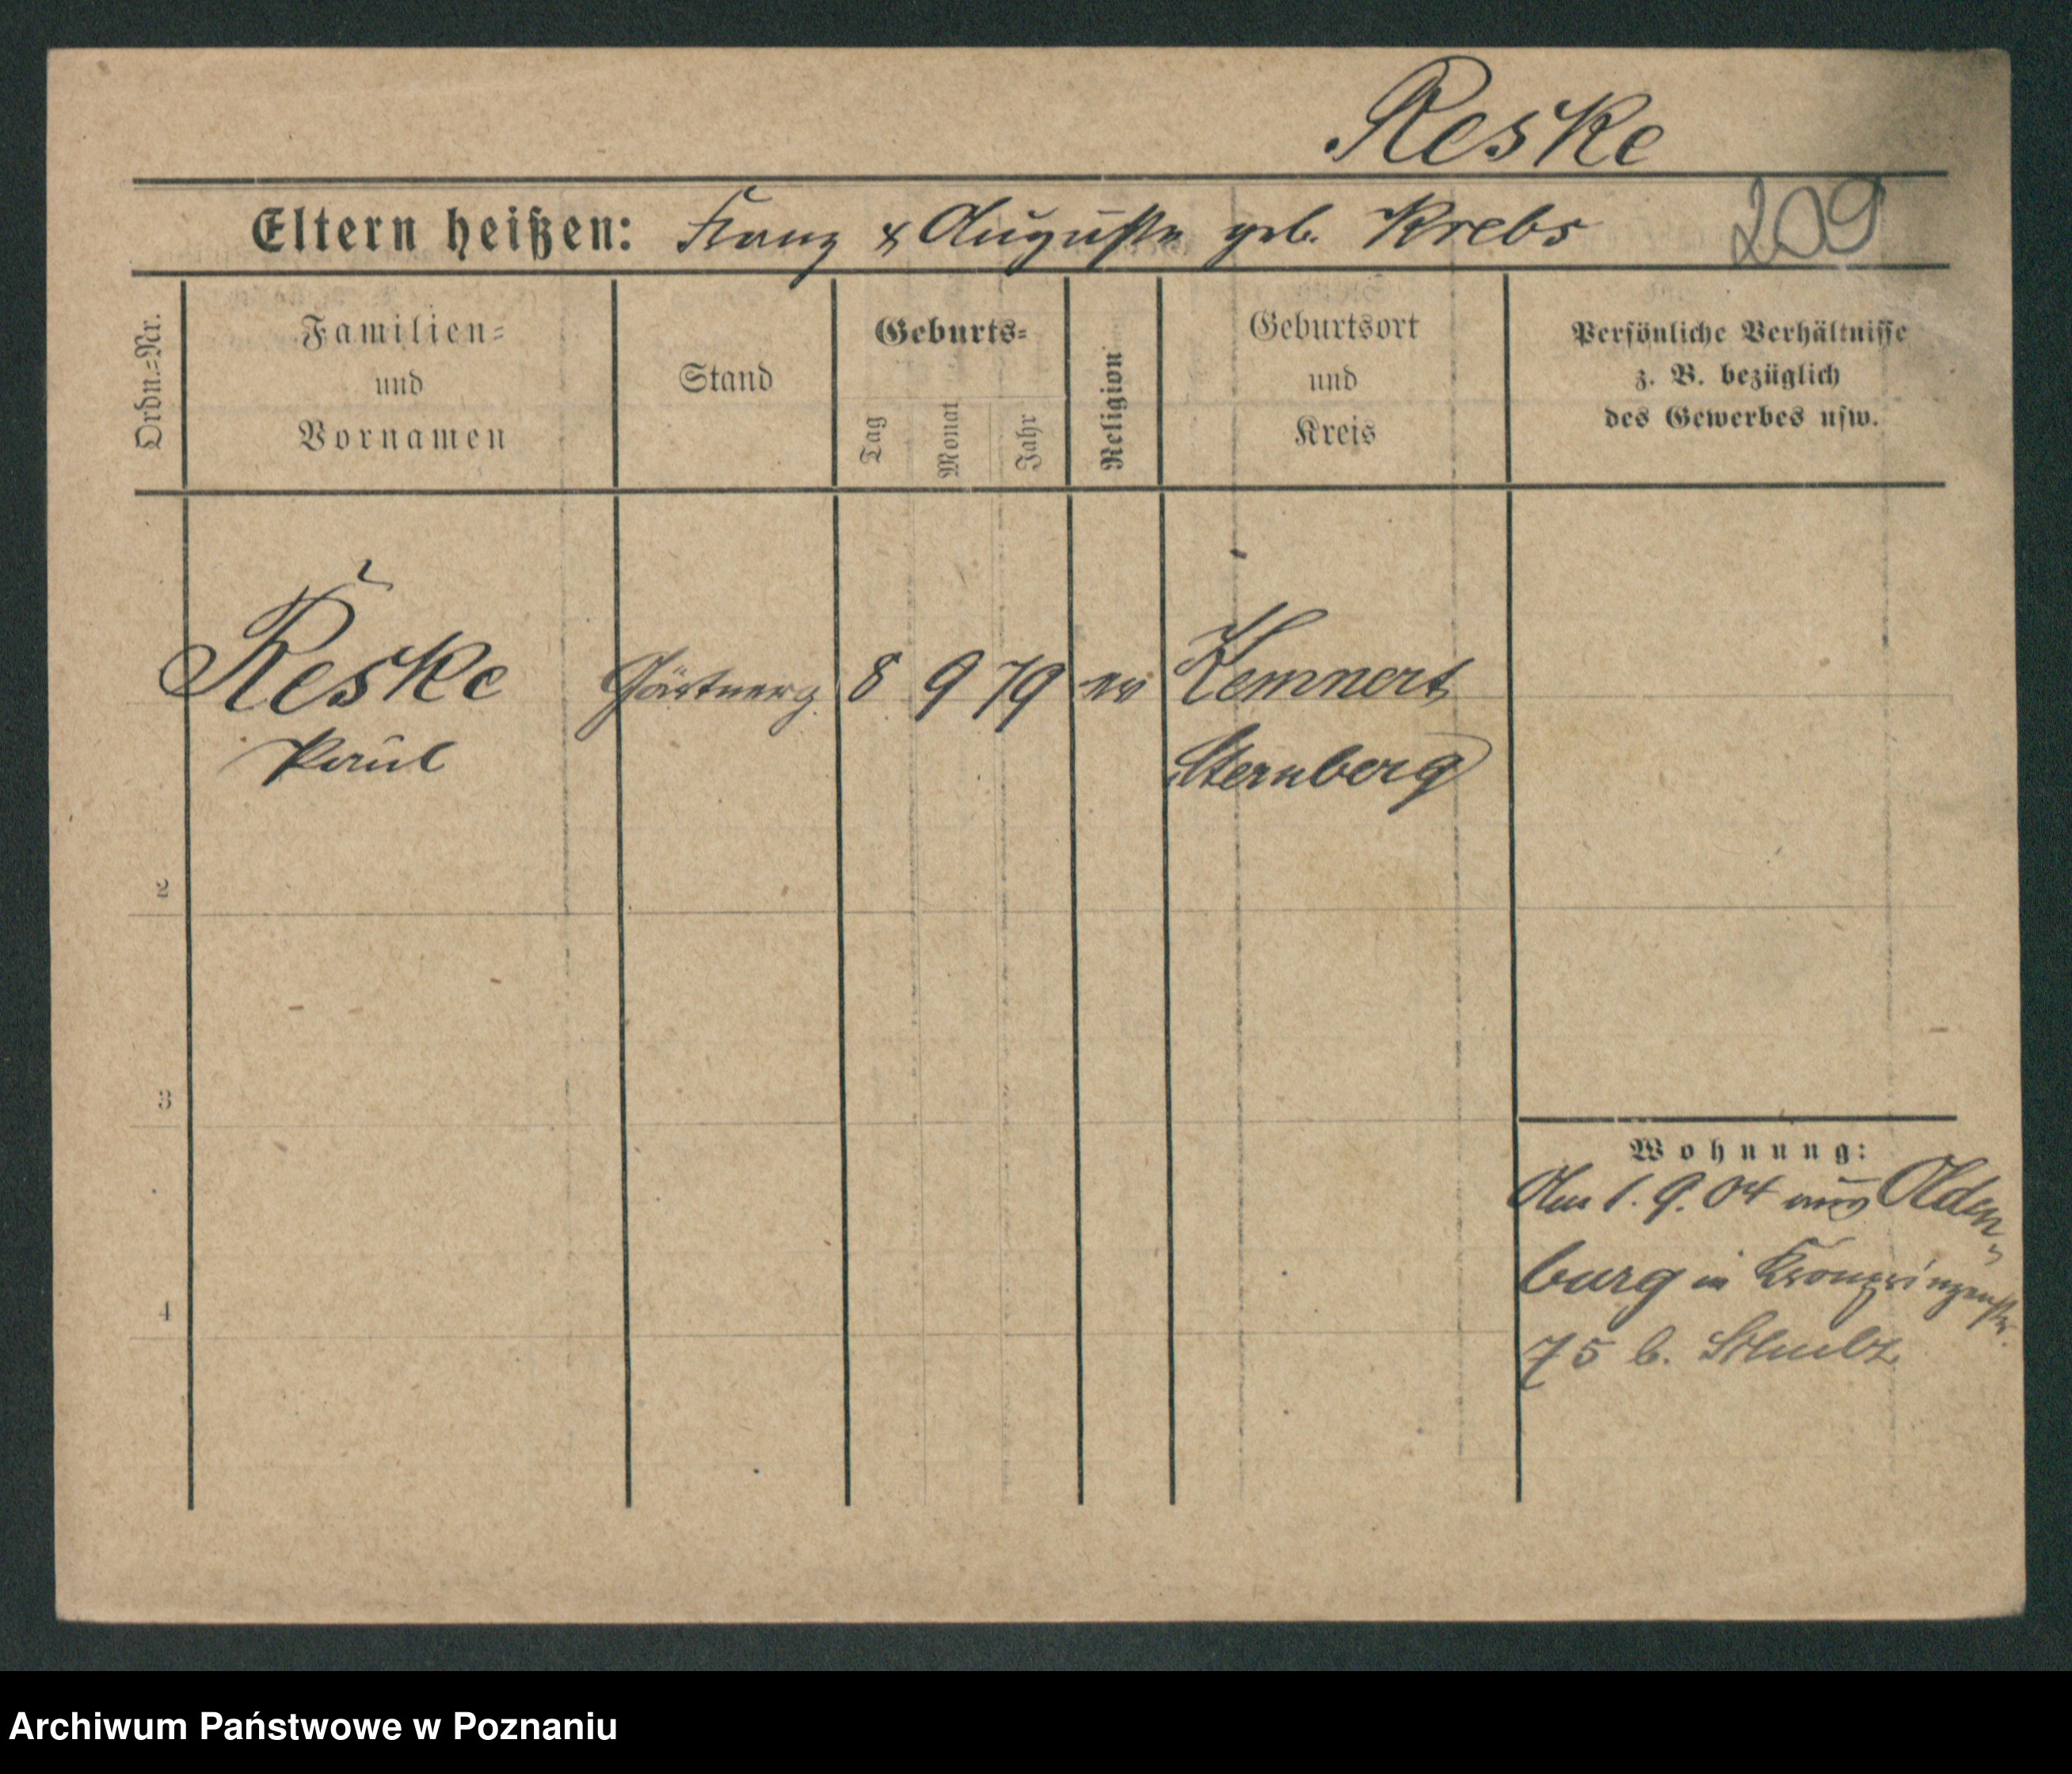 Reske
Eltern heißen: Franz & Auguste geb. Krebs 209
Ordn.=Nr.
Familien=
und
Vornamen
Stand
Geburts=
Tag
Monat
Jahr
Religion
Geburtsort
und
Kreis
Persönliche Verhältnisse
z. B. bezüglich
des Gewerbes usw.
Reske Gärtnerg 8 9 79 ev
Paul
Sternberg
2
3
4
Wohnung:
Am 1. 9. 04 aus Olden=
burg in Kronprinzenstr.
75 b. Schulz
Archiwum Państwowe w Poznaniu